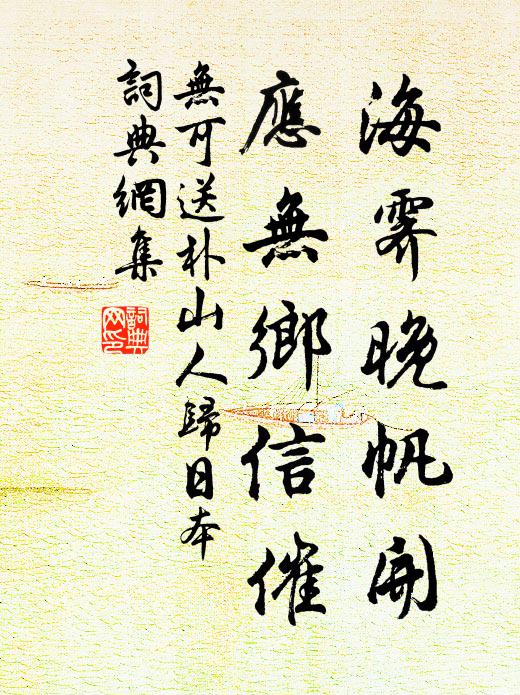 海霽晚帆開
應無鄉信催
無可送朴山人歸日本
詞典網集
詞典
网印